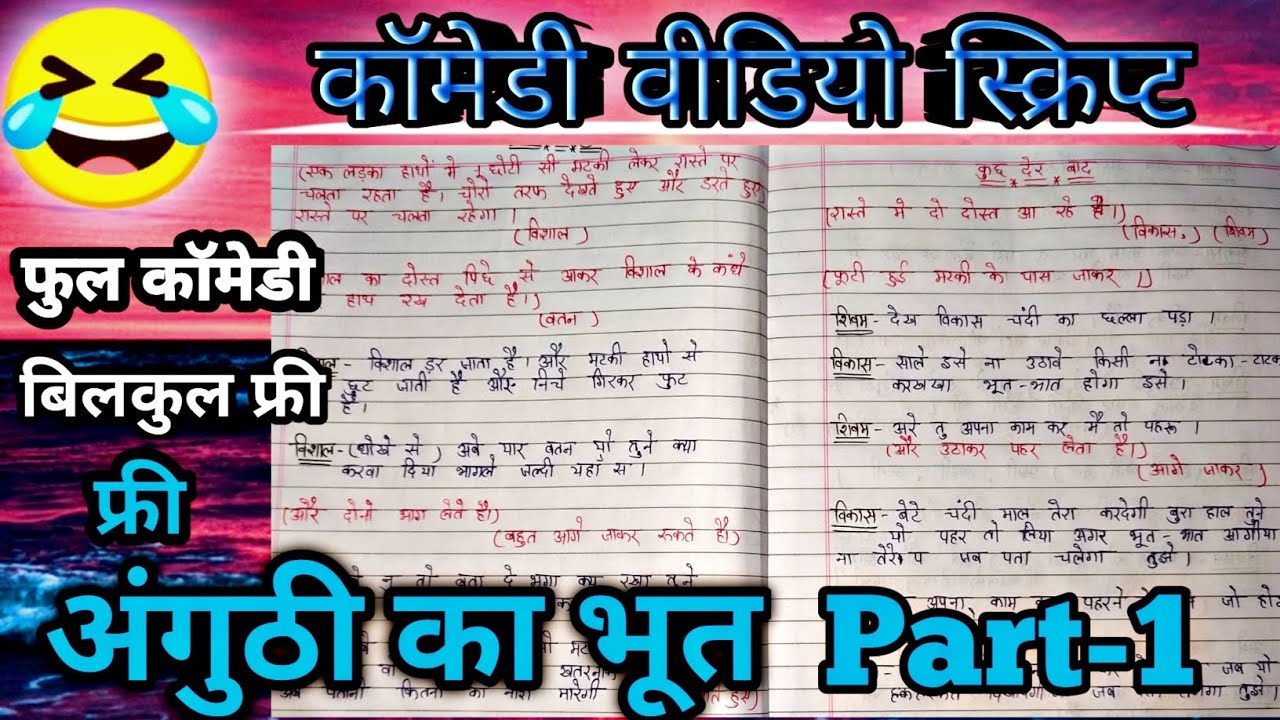 कॉमेडी वीडियो स्क्रिप्ट
फुल कॉमेडी
बिलकुल फ्री
फ्री
अंगुठी का भूत Part-1
(एक लड़का हाथों मे 1 छोटी सी मटकी लेकर रास्ते पर
चलता रहता है। चारो तरफ देखते हुए और डरते हुए
रास्ते पर चलता रहेगा।
(विशाल)
का दोस्त पिछे से आकर विशाल के कंधे
हाथ रख देता है।)
(वतन)
विशाल - विशाल डर जाता है। और मटकी हाथो से
छूट जाती है और निचे गिरकर फुट
है।
विशाल - (धोखे से) अबे यार वतन यो तुने क्या
करवा दिया भागले जल्दी यहा से।
(और दोनो भाग लेते है।)
(बहुत आगे जाकर रुकते है।)
तो बता दे भगा क्यू रखा तुने
खतरनाक
कितनो का नाश मारेगी
कुछ देर बाद
(रास्ते मे दो दोस्त आ रहे है।)
(विकास,) (शिवम)
(फूटी हुई मटकी के पास जाकर।)
शिवम - देख विकास चंदी का छल्ला पड़ा।
विकास - साले इसे ना उठावे किसी न टोटका - टाटक
करखखा भूत-भात होगा इसे।
शिवम - अरे तु अपना काम कर मै तो पहरू।
(और उठाकर पहर लेता है।)
(आगे जाकर)
विकास - बेटे चंदी माल तेरा करदेगी बुरा हाल तुने
यो पहर तो लिया अगर भूत-भात आगीया
ना तेरे प जब पता चलेगा तुझे।
अपना काम कर पहरने दे जो हो
जब यो
जब तुझे।